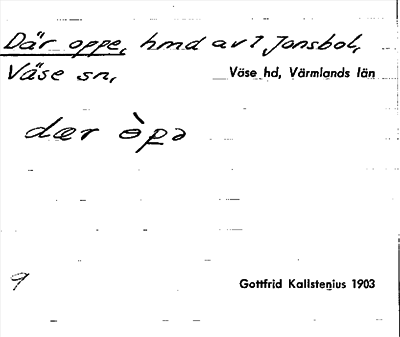 Där oppe, hmd av 1 Jonsbol,
Väse sn, Väse hd, Värmlands län
dær òpə
9
Gottfrid Kallstenius 1903